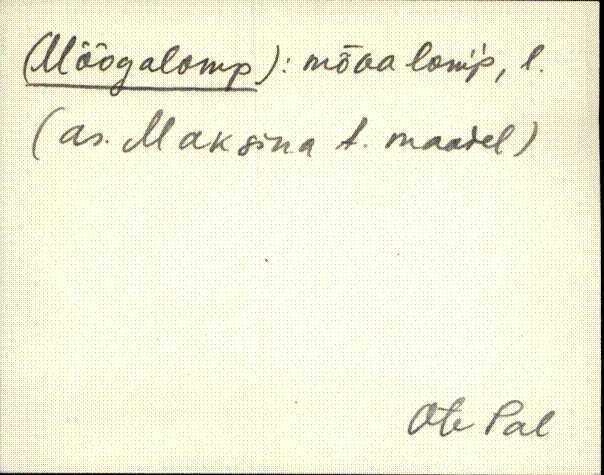 (Mõõgalomp): mõõa lom'p, l.
(as. Maksina t. maadel)
Ote Pal